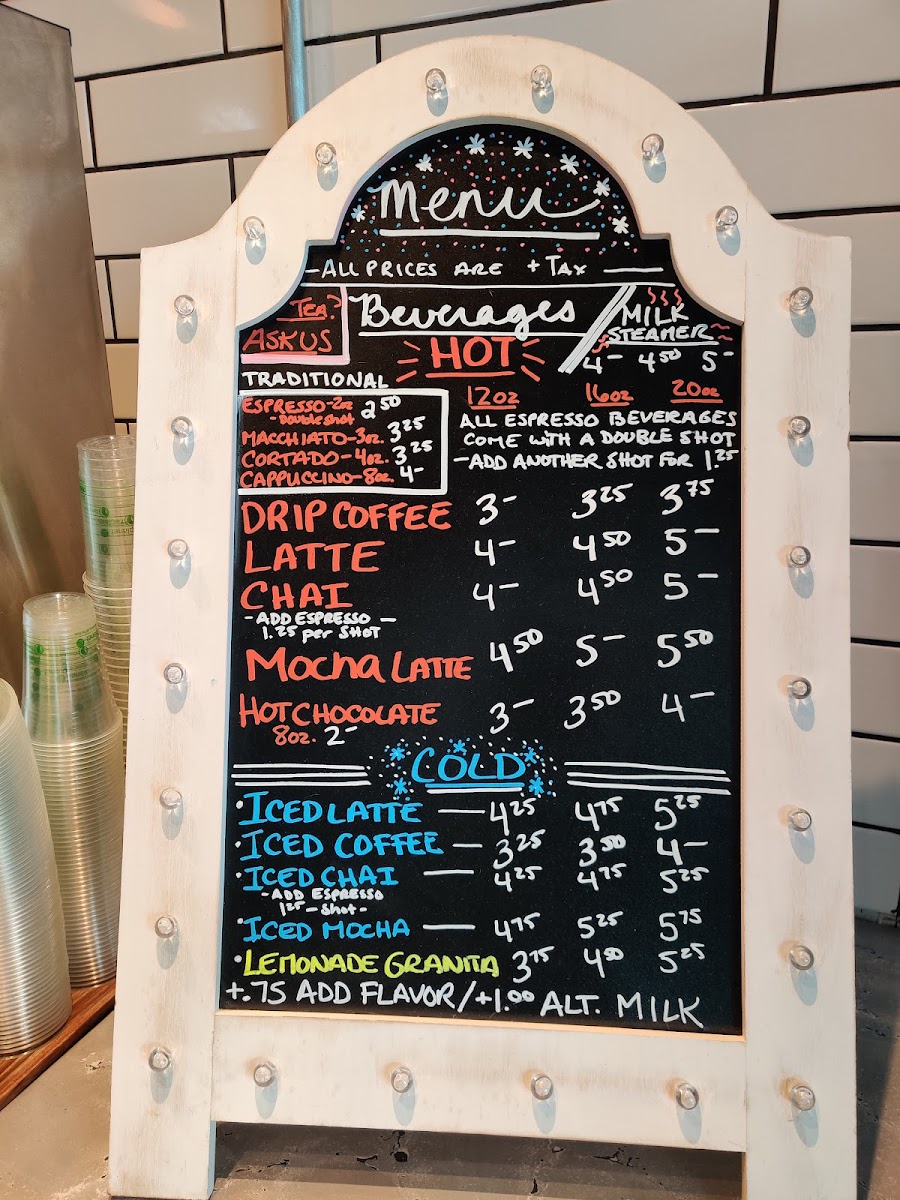 Menu
-ALL PRICES ARE +TAX
TEA?
ASK US
Beverages
MILK
STEAMER
4- 4⁵⁰ 5-
HOT
TRADITIONAL
ESPRESSO-2oz 2⁵⁰
-Double shot
MACCHIATO-3oz. 3²⁵
CORTADO-4oz. 3²⁵
CAPPUCCINO-8oz 4-
12oz 16oz 20oz
ALL ESPRESSO BEVERAGES
COME WITH A DOUBLE SHOT
-ADD ANOTHER SHOT FOR 1.²⁵
DRIP COFFEE 3- 3²⁵ 3⁷⁵
LATTE 4- 4⁵⁰ 5-
CHAI 4- 4⁵⁰ 5-
-ADD ESPRESSO-
1.²⁵ per SHOT
Mocha LATTE 4⁵⁰ 5- 5⁵⁰
HOT CHOCOLATE 3- 3⁵⁰ 4-
8oz. 2-
COLD
·ICED LATTE — 4²⁵ 4⁷⁵ 5²⁵
·ICED COFFEE — 3²⁵ 3⁵⁰ 4-
·ICED CHAI — 4²⁵ 4⁷⁵ 5²⁵
-ADD ESPRESSO
1²⁵-SHOT-
·ICED MOCHA — 4⁷⁵ 5²⁵ 5⁷⁵
·LEMONADE GRANITA 3⁷⁵ 4⁵⁰ 5²⁵
+.75 ADD FLAVOR/+1.⁰⁰ ALT. MILK